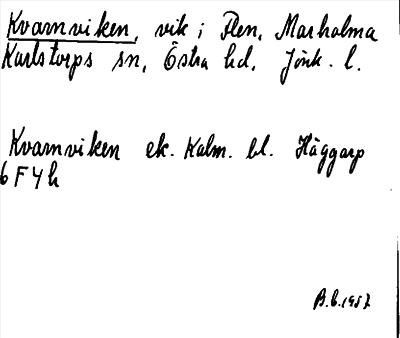 Kvarnviken, vik i Flen, Marholma
Karlstorps sn, Östra hd, Jönk. l.
Kvarnviken ek. Kalm. bl. Häggarp
6 F 4 h
B.b. 1957